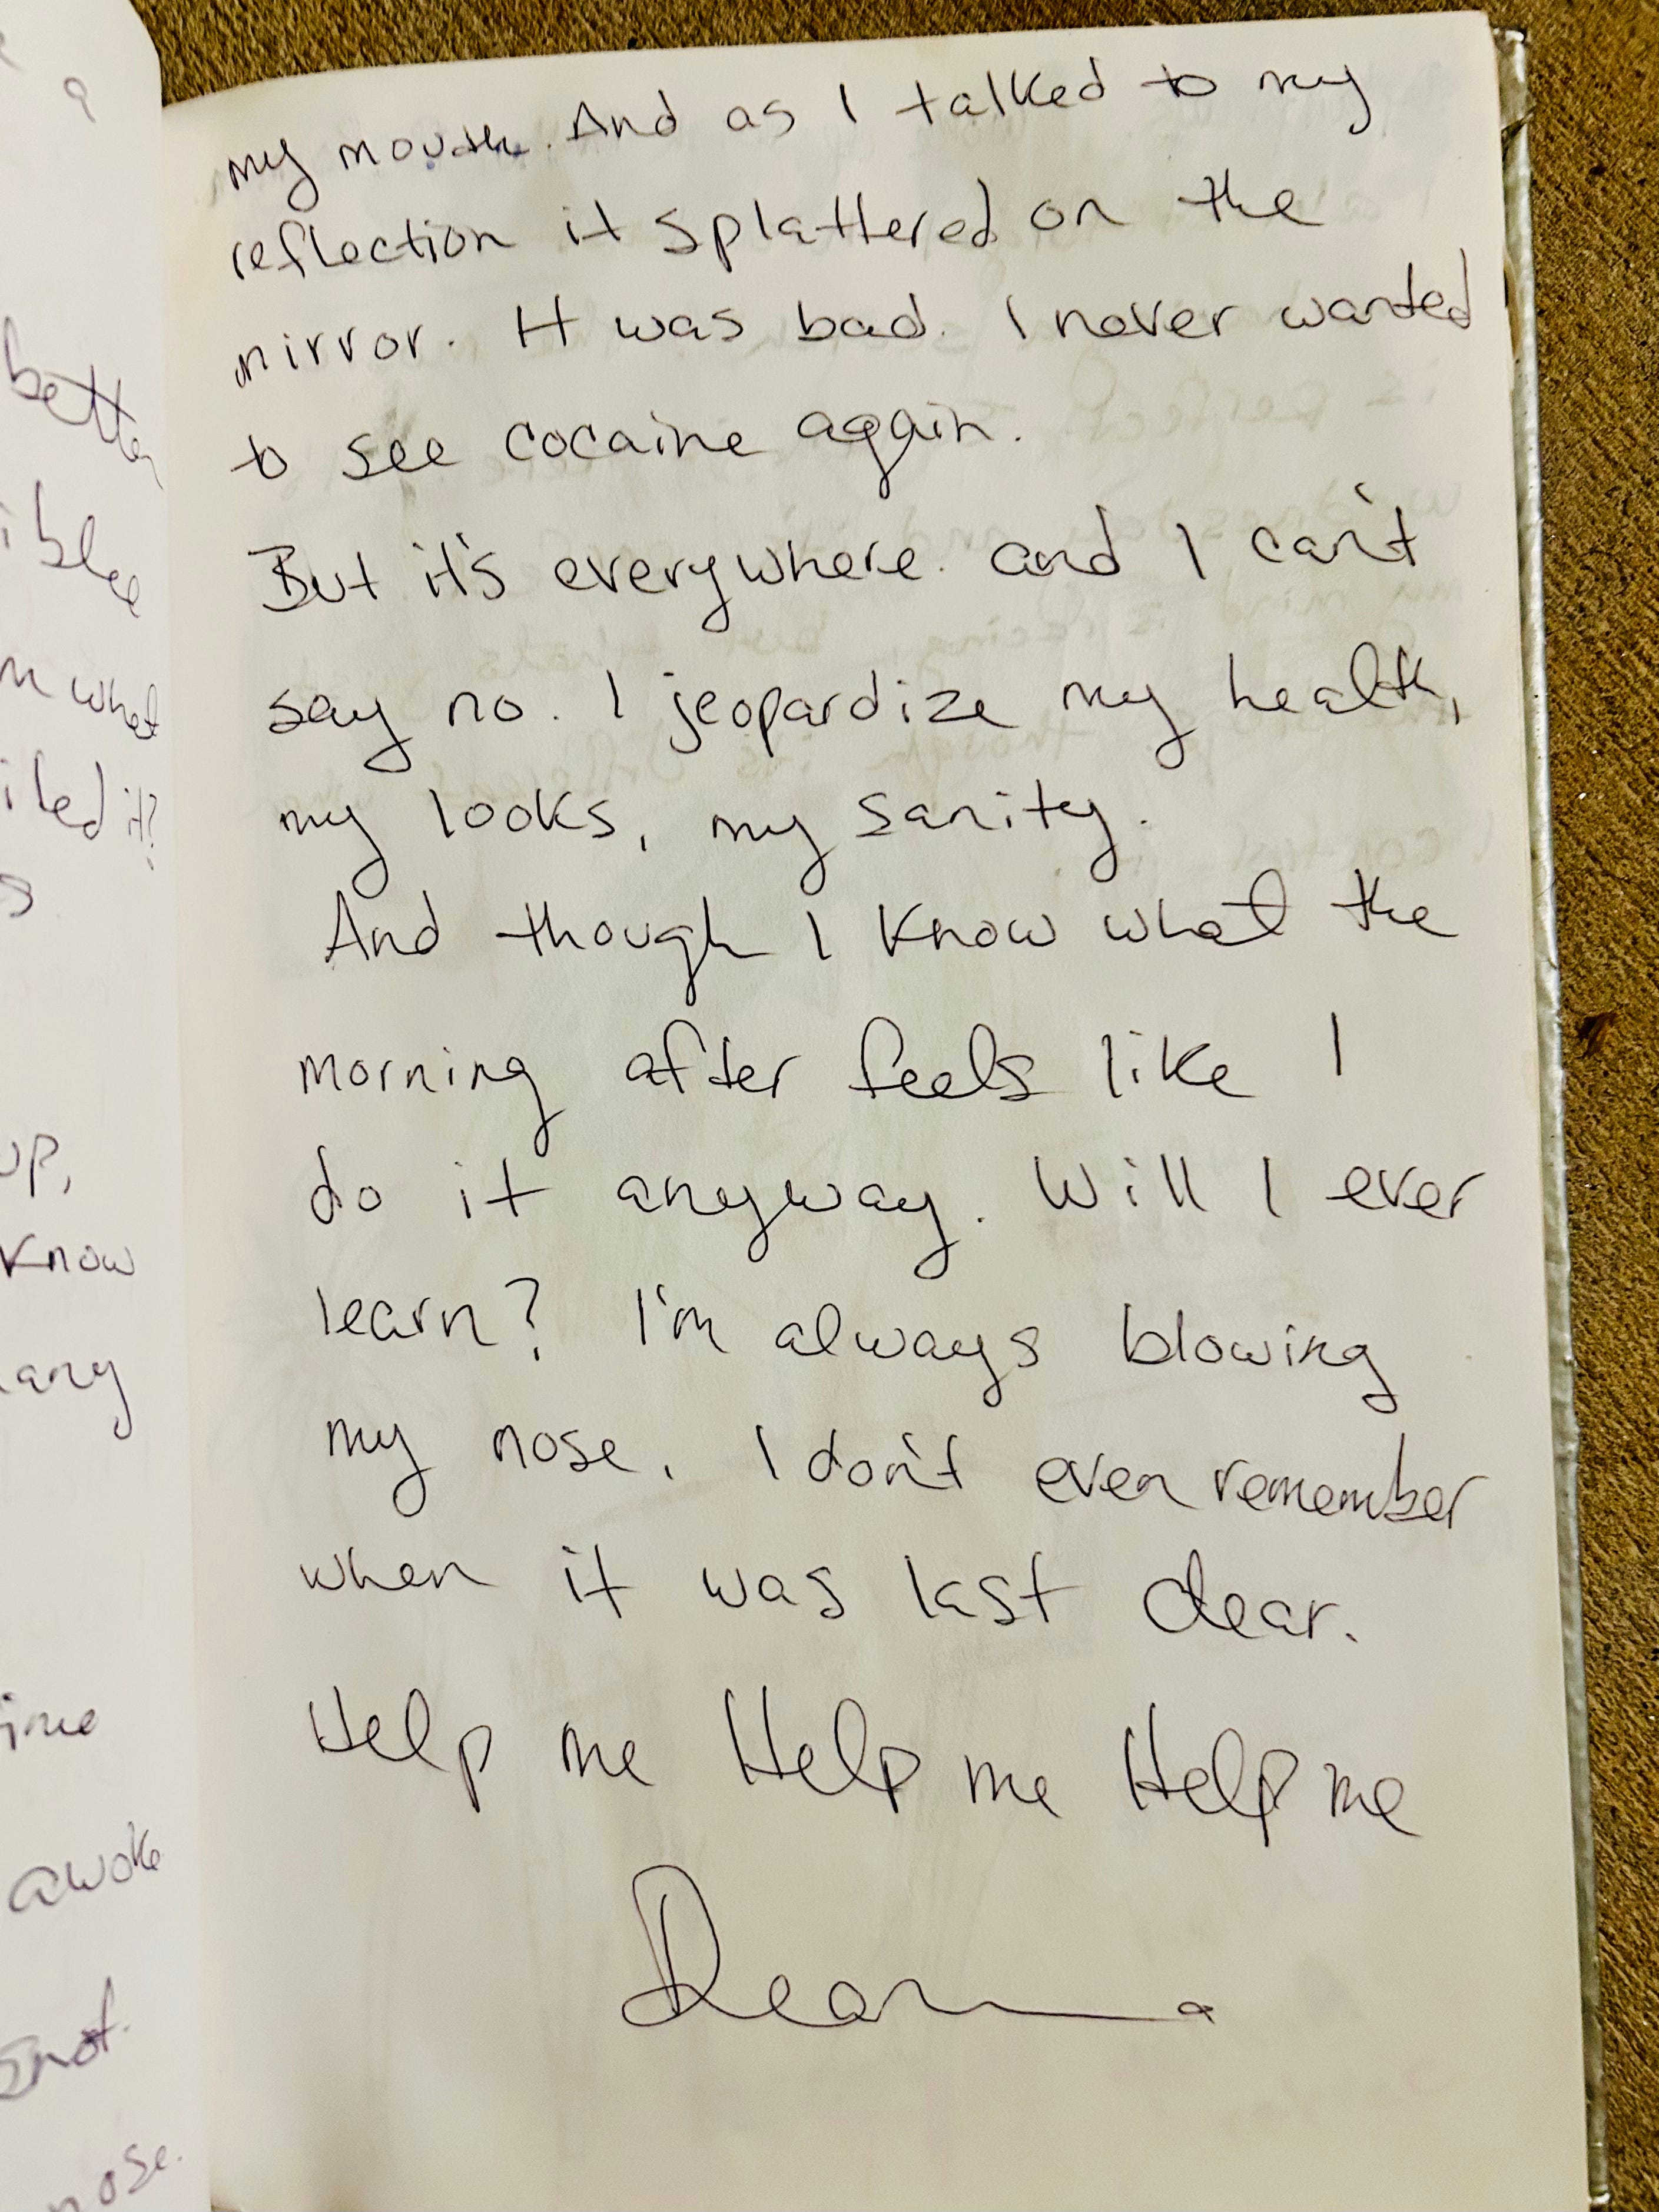 my mouth. And as I talked to my
reflection it splattered on the
mirror. It was bad. I never wanted
to see cocaine again.
But it's everywhere. and I can't
say no. I jeopardize my health,
my looks, my sanity.
And though I know what the
morning after feels like I
do it anyway. Will I ever
learn? I'm always blowing
my nose. I don't even remember
when it was last clear.
Help me Help me Help me
Deanna